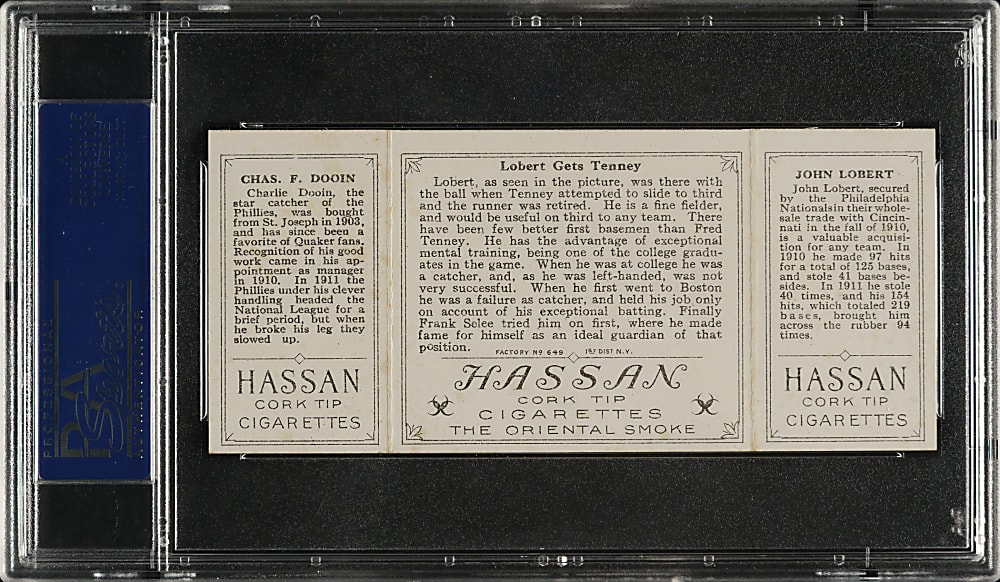 CHAS. F. DOOIN
Charlie Dooin, the
star catcher of the
Phillies, was bought
from St. Joseph in 1903,
and has since been a
favorite of Quaker fans.
Recognition of his good
work came in his ap-
pointment as manager
in 1910. In 1911 the
Phillies under his clever
handling headed the
National League for a
brief period, but when
he broke his leg they
slowed up.
HASSAN
CORK TIP
CIGARETTES
Lobert Gets Tenney
Lobert, as seen in the picture, was there with
the ball when Tenney attempted to slide to third
and the runner was retired. He is a fine fielder,
and would be useful on third to any team. There
have been few better first basemen than Fred
Tenney. He has the advantage of exceptional
mental training, being one of the college gradu-
ates in the game. When he was at college he was
a catcher, and, as he was left-handed, was not
very successful. When he first went to Boston
he was a failure as catcher, and held his job only
on account of his exceptional batting. Finally
Frank Selee tried him on first, where he made
fame for himself as an ideal guardian of that
position.
FACTORY Nº 649 1ST DIST N.Y.
HASSAN
CORK TIP
CIGARETTES
THE ORIENTAL SMOKE
JOHN LOBERT
John Lobert, secured
by the Philadelphia
Nationals in their whole-
sale trade with Cincin-
nati in the fall of 1910,
is a valuable acquisi-
tion for any team. In
1910 he made 97 hits
for a total of 125 bases,
and stole 41 bases be-
sides. In 1911 he stole
40 times, and his 154
hits, which totaled 219
bases, brought him
across the rubber 94
times.
HASSAN
CORK TIP
CIGARETTES
PROFESSIONAL
PSA
AUTHENTICATOR